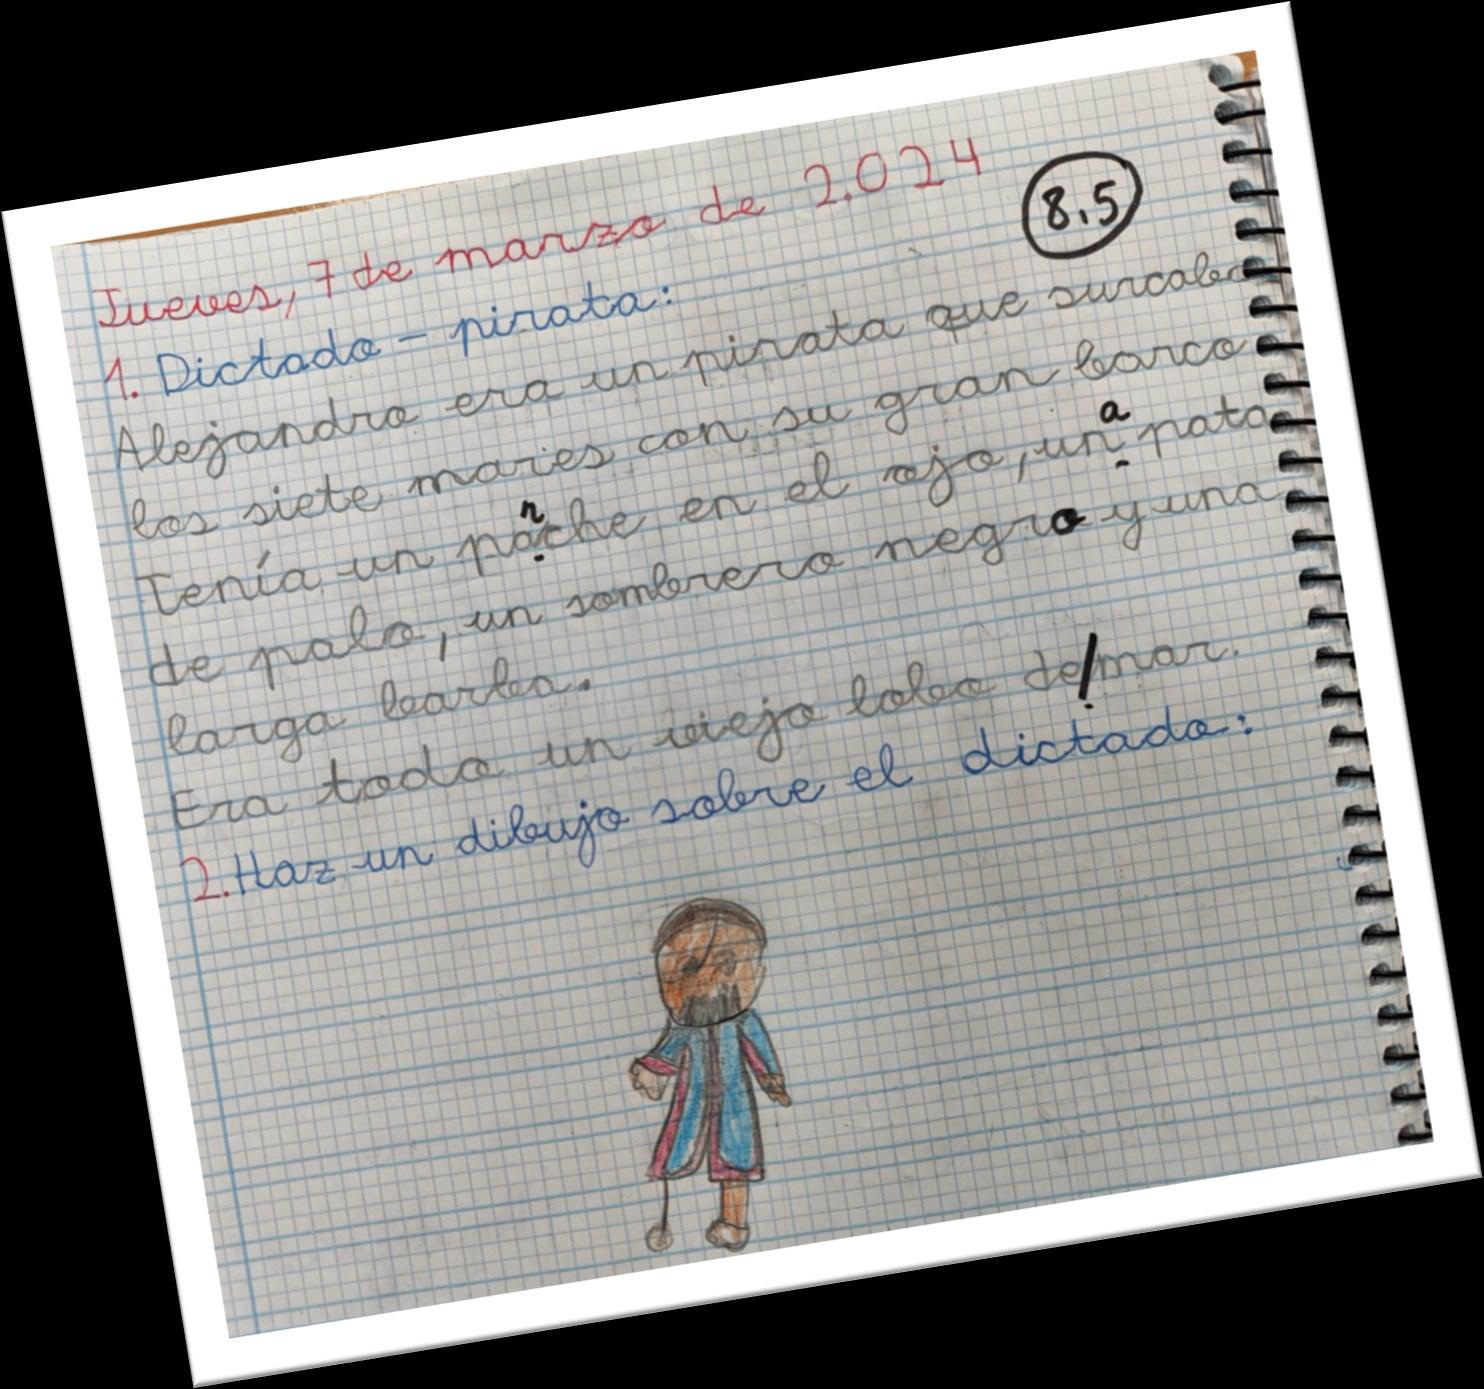 Jueves, 7 de marzo de 2.024
8.5
1. Dictado - pirata:
Alejandro era un pirata que surcaba
los siete mares con su gran barco
a
Tenía un pache en el ojo, un pata
n
de palo, un sombrero negro y una
larga barba.
Era todo un viejo lobo de/mar.
2. Haz un dibujo sobre el dictado: